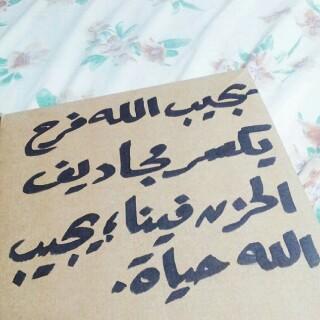 يجيب الله فرح
يكسر مجاديف
الحزن فينا، يجيب
الله حياة.